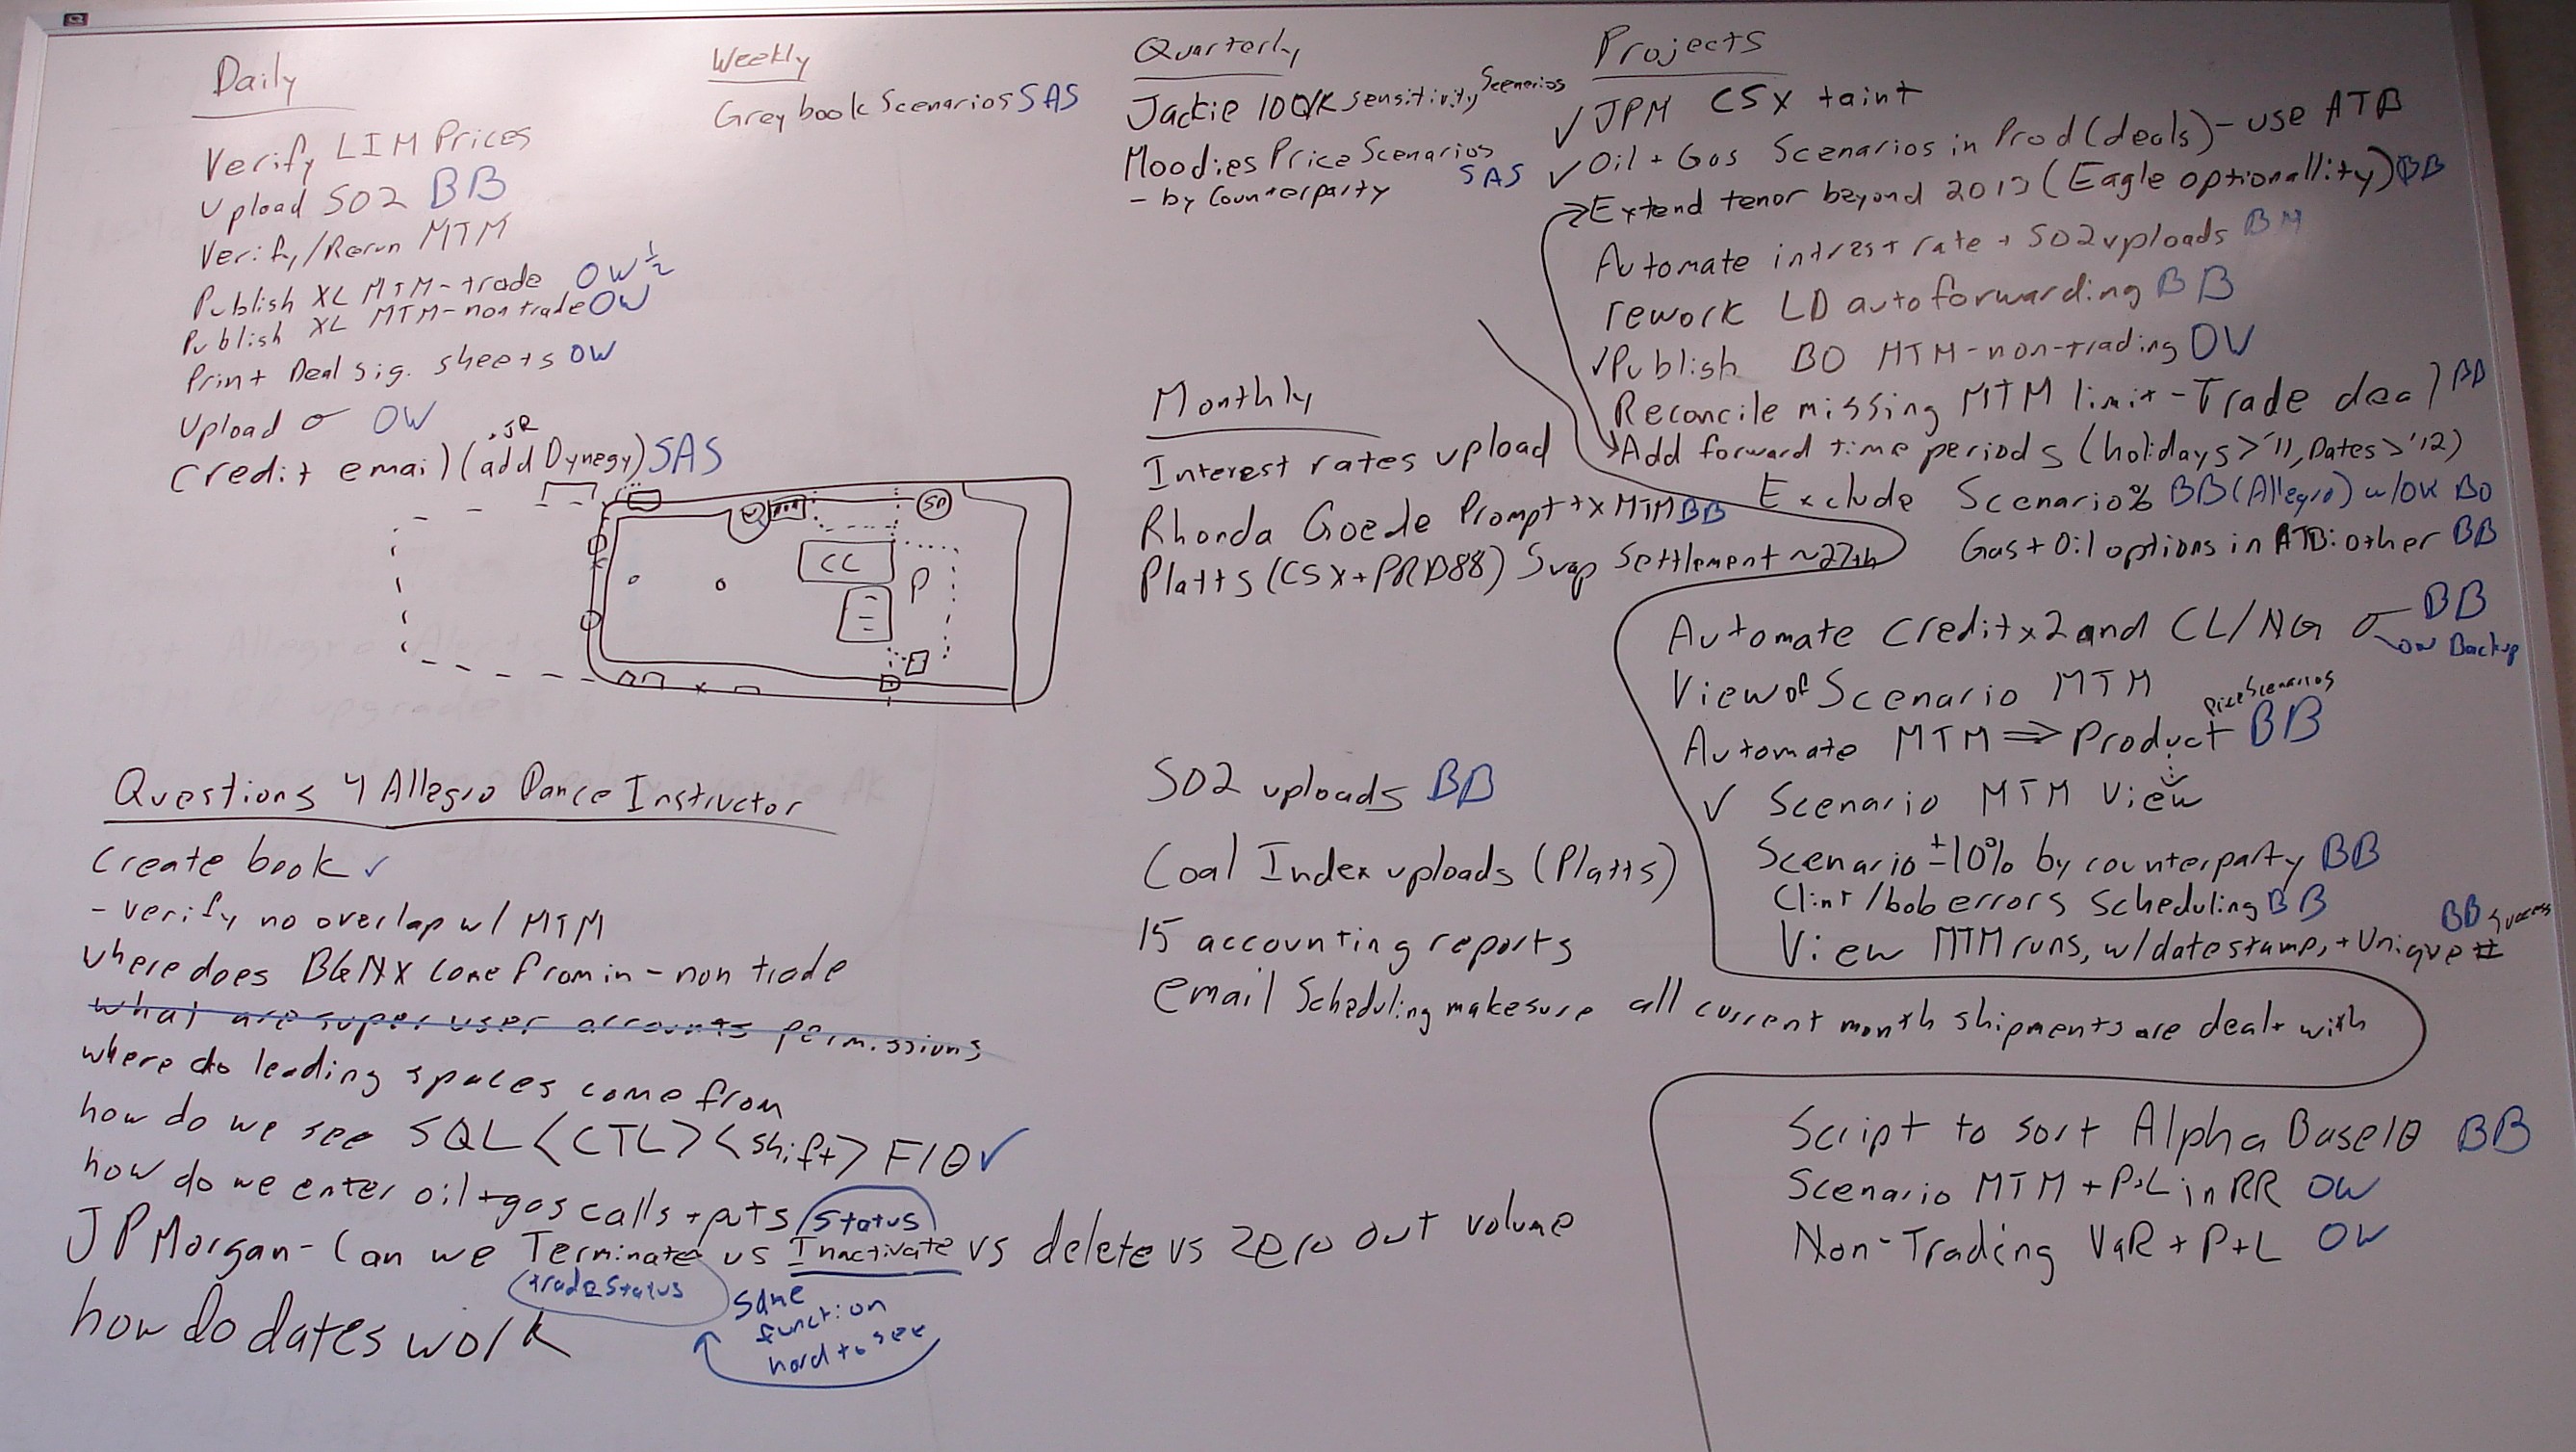 Daily
Verify LIM Prices
Upload SO2 BB
Verify/Rerun MTM
Publish XL MTM-trade OW ½
Publish XL MTM-non trade OW
Print Deal sig. sheets OW
Upload σ OW
Credit email (add Dynegy) SAS
JR
SD
CC
P
Weekly
Grey book Scenarios SAS
Quarterly
Jackie 10Q/K sensitivity Scenerios
Moodies Price Scenarios
- by Counterparty SAS
Monthly
Interest rates upload
Rhonda Goede Prompt + x MTM BB
Platts (CSX + PRB88) Swap Settlement ~27th
SO2 uploads BB
Coal Index uploads (Platts)
15 accounting reports
email Scheduling make sure all current month shipments are dealt with
Projects
✓ JPM CSX taint
✓ Oil + Gas Scenarios in Prod (deals) - use ATB
Extend tenor beyond 2013 (Eagle optionallity) BB
Automate intrest rate + SO2 uploads BM
rework LD autoforwarding BB
✓ Publish BO MTM-non-trading OW
Reconcile missing MTM limit - Trade deal BB
Add forward time periods (holidays > '11, Dates > '12)
Exclude Scenario % BB (Allegro) w/OK BO
Gas + Oil options in ATB: other BB
Automate Credit x2 and CL/NG σ BB
OW Backup
View of Scenario MTM
Price Scenarios
Automate MTM ⇒ Product BB
✓ Scenario MTM View
Scenario ± 10% by counterparty BB
Clint/bob errors Scheduling BB
BB Success
View MTM runs, w/datestamp, + Unique #
Script to sort Alpha Base10 BB
Scenario MTM + P+L in RR OW
Non-Trading VaR + P+L OW
Questions 4 Allegro Dance Instructor
Create book ✓
- verify no overlap w/ MTM
where does BGNX come from in - non trade
what are super user accounts permissions
where do leading spaces come from
how do we see SQL <CTL> <shift> F10 ✓
how do we enter oil + gas calls + puts
status
JP Morgan - Can we Terminate vs Inactivate vs delete vs zero out volume
trade status
same function hard to see
how do dates work